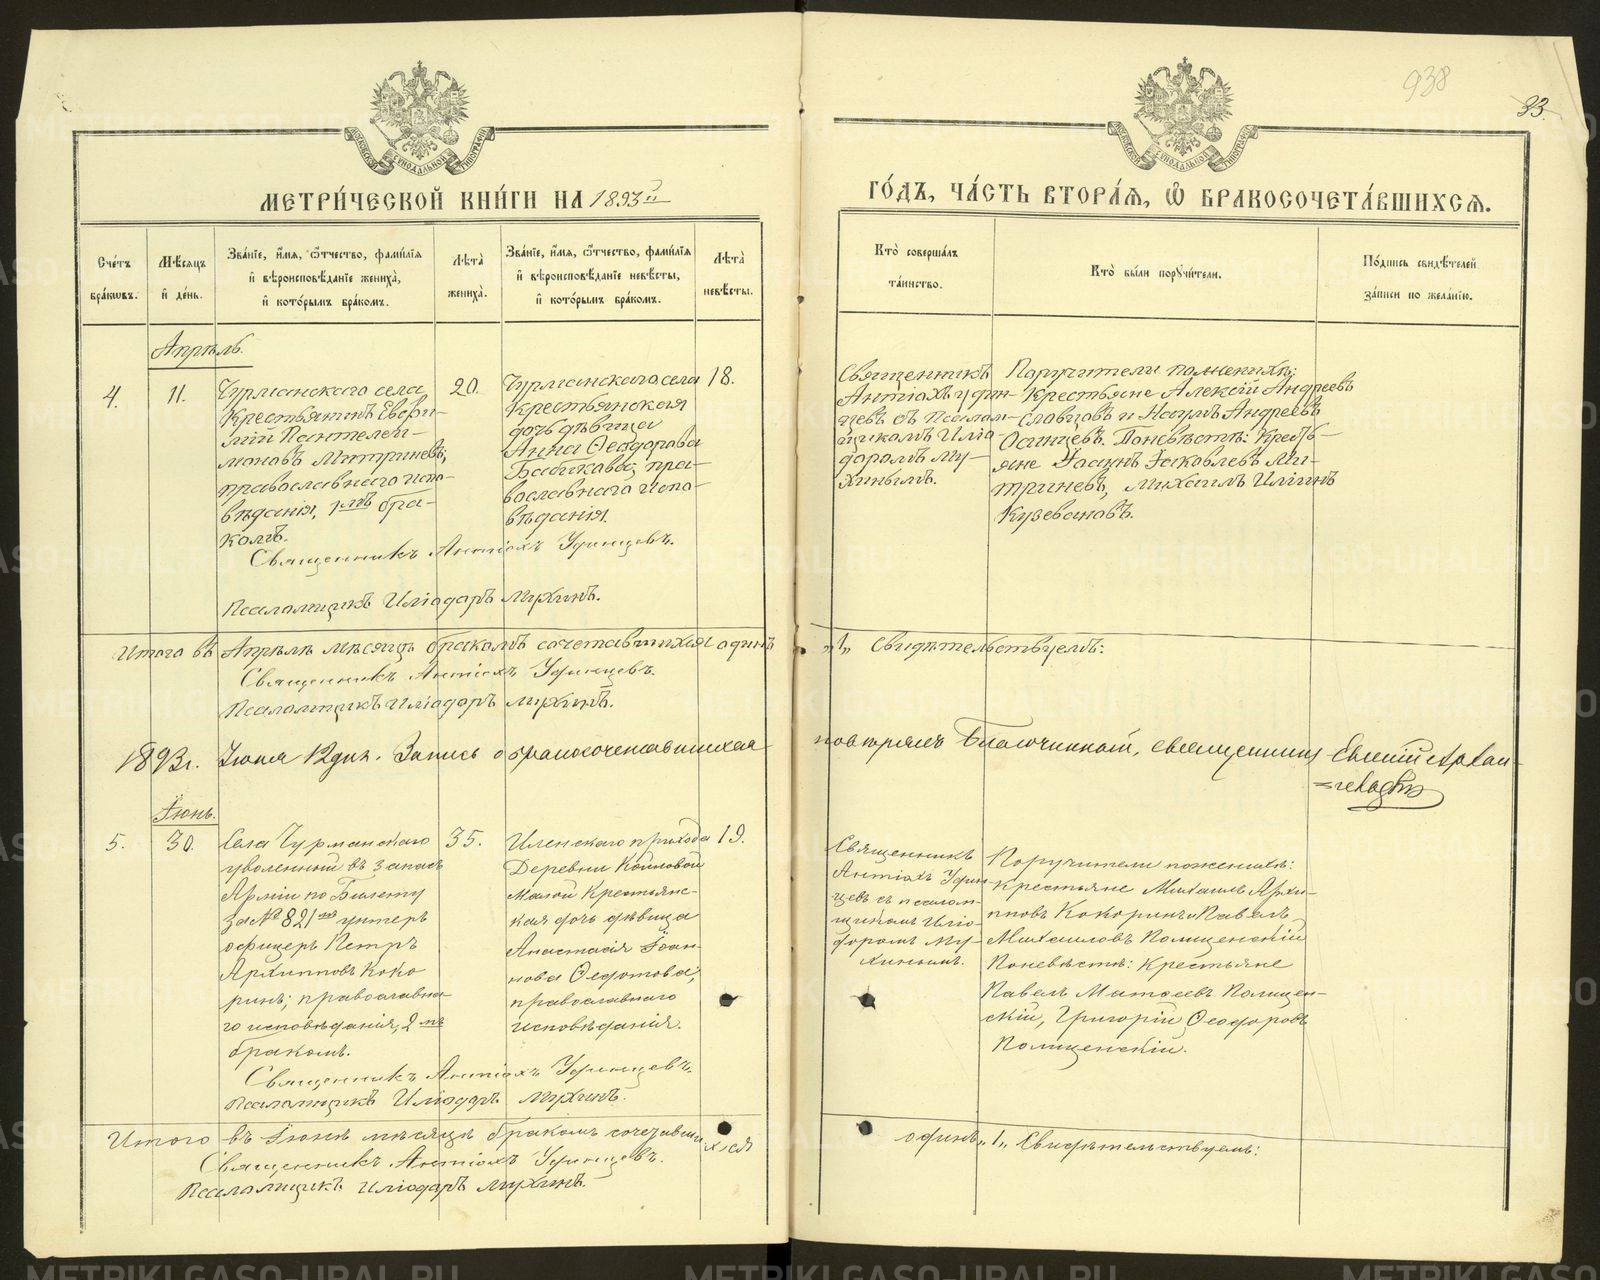 938
33.
МОСКОВСКОЙ СУНОДАЛЬНОЙ ТИПОГРАФІИ
МОСКОВСКОЙ СУНОДАЛЬНОЙ ТИПОГРАФІИ
МЕТРИ́ЧЕСКОЙ КНИ́ГИ НА 1893й
ГО́ДЪ, ЧА́СТЬ ВТОРА́Я, Ѡ БРАКОСОЧЕТА́ВШИХСЯ.
Сче́тъ бра́кωвъ.
Мѣ́сяцъ и́ де́нь.
Зва́нїе, и́мя, ѻ́тчество, фами́лїя и́ вѣроисповѣ́данїе жениха̀, и́ кото́рымъ бра́комъ.
Лѣ́та̀ жениха̀.
Зва́нїе, и́мя, ѻ́тчество, фами́лїя и́ вѣроисповѣ́данїе невѣ́сты, и́ кото́рымъ бра́комъ.
Лѣ́та̀ невѣ́сты.
Кто̀ соверша́лъ та́инство.
Кто̀ бы́ли пору́чи́тели.
По́дпись свидѣ́телей за́писи по жела́нїю.
Апрѣль.
4.
11.
Чурманскаго села
Крестьянинъ Евѳи-
мій Пантелеи-
моновъ Митриневъ,
православнаго испо-
вѣданія, 1мъ бра-
комъ.
20.
Чурманскаго села
Крестьянская
дочь дѣвица
Анна Ѳеодорова
Бабикова, пра-
вославнаго испо-
вѣданія.
18.
Священникъ
Антіохъ Удин-
цевъ съ псалом-
щикомъ Иліо-
доромъ Му-
хинымъ.
Поручители по женихѣ:
Крестьяне Алексѣй Андреевъ
Славцовъ и Наумъ Андреевъ
Осинцевъ. По невѣстѣ: Кресть-
яне Іаковлевъ Ми-
триневъ, Михаилъ Илiинъ
Кузевановъ.
Священникъ Антіохъ Удинцевъ.
Псаломщикъ Иліодоръ Мухинъ.
Итого въ Апрѣлѣ мѣсяцѣ бракомъ сочетавшихся одинъ
„1„ Свидѣтельствуемъ:
Священникъ Антіохъ Удинцевъ.
Псаломщикъ Иліодоръ Мухинъ.
1893г. Іюня 12 дня. Запись о бракосочетавшихся
повѣрялъ Благочинный, священникъ Евгеній Архан-
гельскій
Іюнь.
5.
30.
Села Чурманскаго
уволенный въ запасъ
Арміи по билету
за № 821 унтеръ
офицеръ Петръ
Архипповъ Коко
ринъ; православна-
го исповѣданія, 2мъ
бракомъ.
35.
Иленскаго прихода
Деревни Коиловой
Малой Крестьянс-
кая дочь дѣвица
Анастасія Іоан-
нова Ѳедотова,
православнаго
исповѣданія.
19.
Священникъ
Антіохъ Удин-
цевъ съ псалом-
щикомъ Иліо-
доромъ Му-
хинымъ.
Поручители по женихѣ:
крестьяне Михаилъ Архи-
пповъ Кокоринъ и Павелъ
Михаиловъ Полиценскій
По невѣстѣ: крестьяне
Павелъ Матѳеевъ Полицен-
скій, Григорій Ѳеодоровъ
Полиценскій.
Священникъ Антіохъ Удинцевъ.
Псаломщикъ Иліодоръ Мухинъ.
Итого въ Іюнѣ мѣсяцѣ бракомъ сочетавши хся
одинъ „1„ Свидѣтельствуемъ:
Священникъ Антіохъ Удинцевъ.
Псаломщикъ Иліодоръ Мухинъ.
METRIKI.GASO-URAL.RU